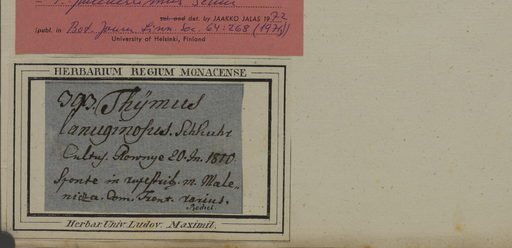 = T. pulcherrimus Schur
rel. and det. by JAAKKO JALAS 1972
(publ. in Bot. Journ. Linn. Soc. 64:268 (1971))
University of Helsinki, Finland
HERBARIUM REGIUM MONACENSE
393. Thÿmus
lanuginosus. Schkuhr
Cultus. Rownye 20. Jn. 1810.
Sponte in rupestrib. m. Male-
nicza. Com. Trent. rarius.
Rochel.
Herbar. Univ. Ludov. Maximil.